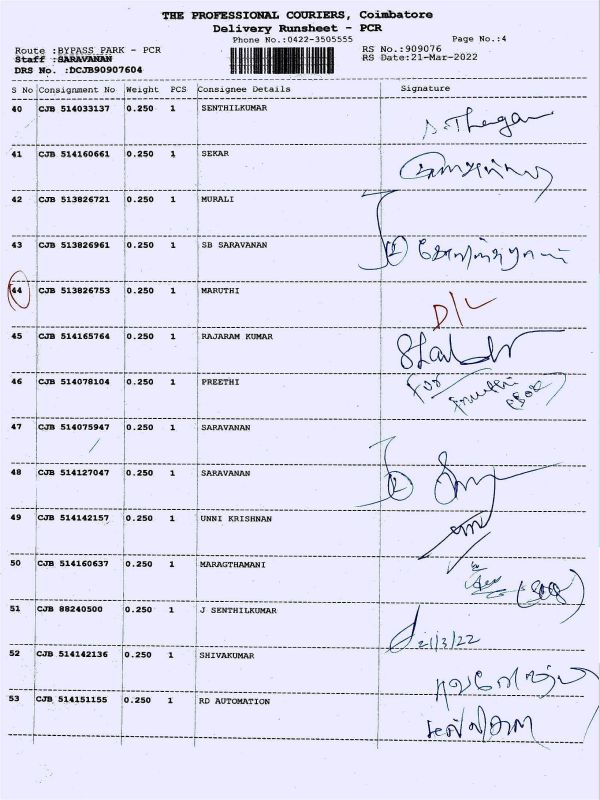 THE PROFESSIONAL COURIERS, Coimbatore
Delivery Runsheet - PCR
Phone No.:0422-3505555
Page No.:4
Route :BYPASS PARK - PCR
RS No.:909076
Staff :SARAVANAN
RS Date:21-Mar-2022
DRS No. :DCJB90907604
S No Consignment No Weight PCS Consignee Details Signature
40 CJB 514033137 0.250 1 SENTHILKUMAR
41 CJB 514160661 0.250 1 SEKAR
42 CJB 513826721 0.250 1 MURALI
43 CJB 513826961 0.250 1 SB SARAVANAN
44 CJB 513826753 0.250 1 MARUTHI D/L
45 CJB 514165764 0.250 1 RAJARAM KUMAR
46 CJB 514078104 0.250 1 PREETHI For
47 CJB 514075947 0.250 1 SARAVANAN
48 CJB 514127047 0.250 1 SARAVANAN
49 CJB 514142157 0.250 1 UNNI KRISHNAN
50 CJB 514160637 0.250 1 MARAGTHAMANI
51 CJB 88240500 0.250 1 J SENTHILKUMAR 21/3/22
52 CJB 514142136 0.250 1 SHIVAKUMAR
53 CJB 514151155 0.250 1 RD AUTOMATION